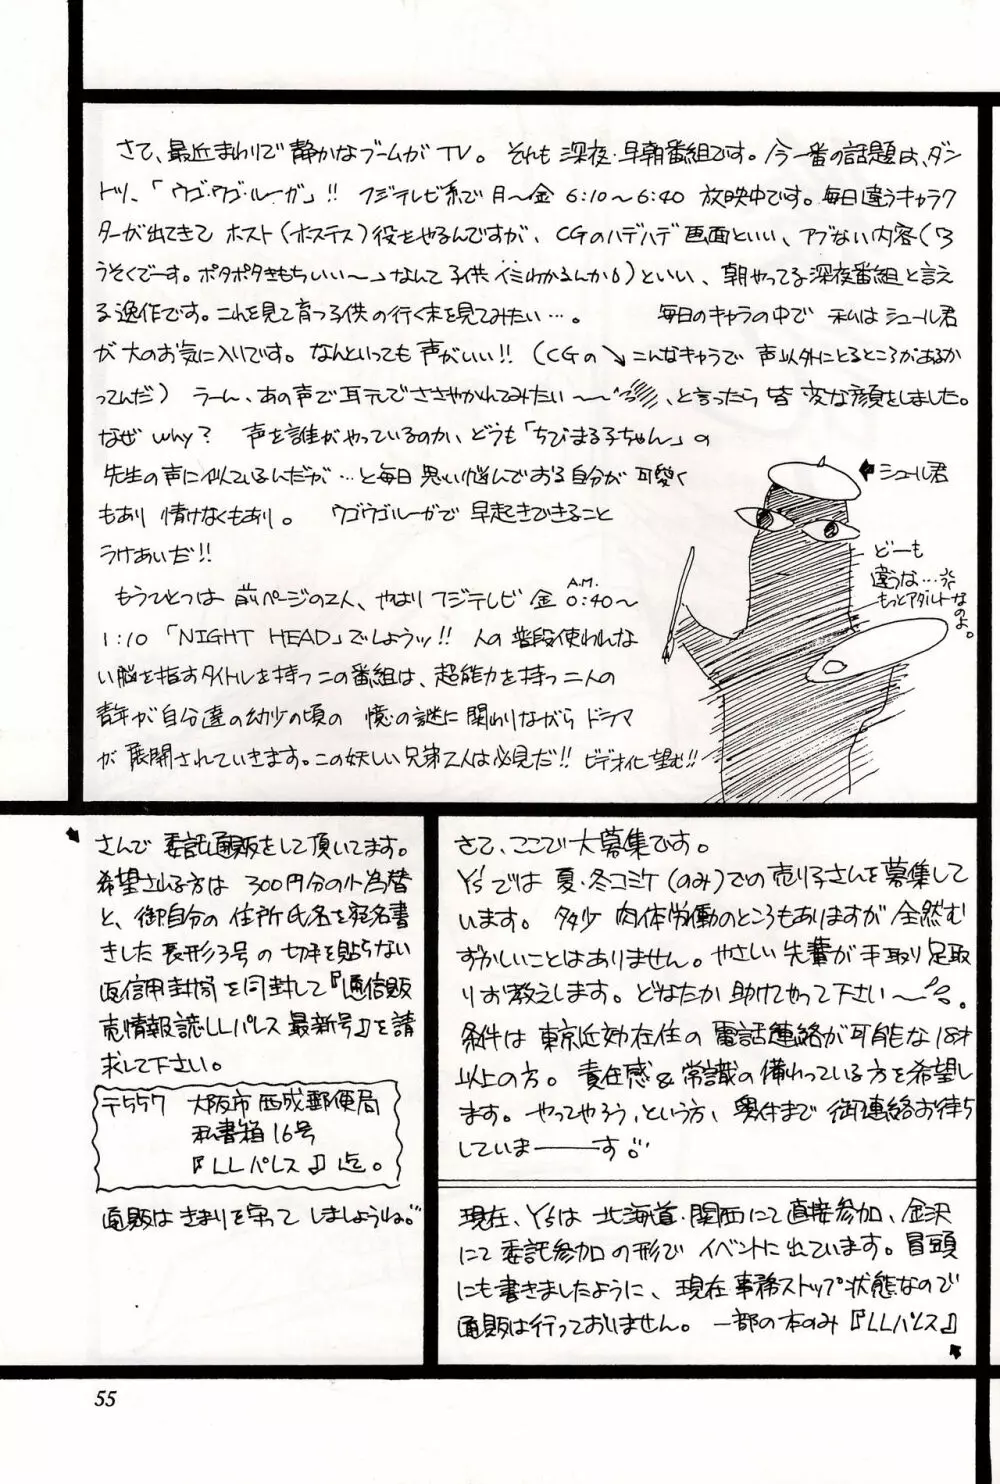 さて、最近まわりで静かなブームがTV。それも深夜・早朝番組です。今一番の話題は、ダン
トツ、「ウゴ・ウゴ・ルーガ」!! フジテレビ系で月〜金 6:10〜6:40 放映中です。毎日違うキャラク
ターが出てきて ホスト(ホステス)役をやるんですが、CGのハデハデ画面といい、アブない内容(「ろ
うそくでーす。ポタポタきもちいい〜」なんて子供イミわかるんか6)といい、朝やってる深夜番組と言え
る逸作です。これを見て育つ子供の行く末を見てみたい…。 毎日のキャラの中で 私はシュール君
が大のお気に入りです。なんといっても声がいい!! (CGの↘こんなキャラで声以外にとるところがあるか
ってんだ) うーん、あの声で耳元でささやかれてみたい〜〜、と言ったら皆変な顔をしました。
なぜ why? 声を誰がやっているのか、どうも「ちびまる子ちゃん」の
先生の声に似ているんだが…と毎日思い悩んでおる自分が可愛く
もあり 情けなくもあり。 ウゴウゴルーガで早起きできること
うけあいだ!!
もうひとつは前ページの2人、やはりフジテレビ 金 A.M.0:40〜
1:10 「NIGHT HEAD」でしょうッ!! 人の普段使われな
い脳を指すタイトルを持つこの番組は、超能力を持つ二人の
青年が自分達の幼少の頃の 憶の謎に関わりながらドラマ
が展開されていきます。この妖しい兄弟2人は必見だ!! ビデオ化望む!!
シュール君
どーも
違うな…
もっとアダルトなのよ。
さて、ここで大募集です。
Y'sでは夏・冬コミケ(のみ)での売り子さんを募集して
います。多少肉体労働のところもありますが全然む
ずかしいことはありません。やさしい先輩が手取り足取
りお教えします。どなたか助けてやって下さい〜。
条件は東京近効在住の電話連絡が可能な18才
以上の方。責任感&常識の備わっている方を希望し
ます。やってやろう、という方、奥付まで御連絡お待ち
していま――す
現在、Y'sは北海道・関西にて直接参加、金沢
にて委託参加の形でイベントに出ています。冒頭
にも書きましたように、現在事務ストップ状態なので
通販は行っておいません。一部の本のみ『LLパレス』
さんで委託通販をして頂いてます。
希望される方は300円分の小為替
と、御自分の住所氏名を宛名書
きした長形3号の切手を貼らない
返信用封筒を同封して『通信販
売情報誌LLパレス最新号』を請
求して下さい。
〒557 大阪市西成郵便局
私書箱16号
『LLパレス』迄。
通販はきまりを守ってしましょうね。
55